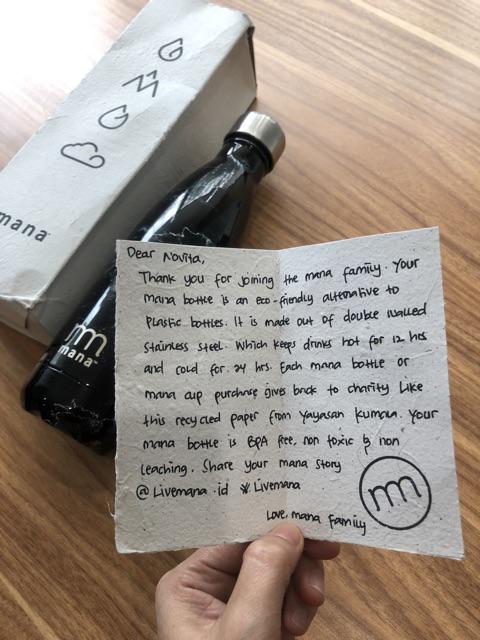 mana
mana
Dear Novita,
Thank you for joining the mana family. Your
mana bottle is an eco-friendly alternative to
plastic bottles. It is made out of double walled
stainless steel. Which keeps drinks hot for 12 hrs
and cold for 24 hrs. Each mana bottle or
mana cup purchase gives back to charity like
this recycled paper from Yayasan Kumala. Your
mana bottle is BPA free, non toxic & non
leaching. Share your mana story
@Livemana.id # Livemana
Love, mana family